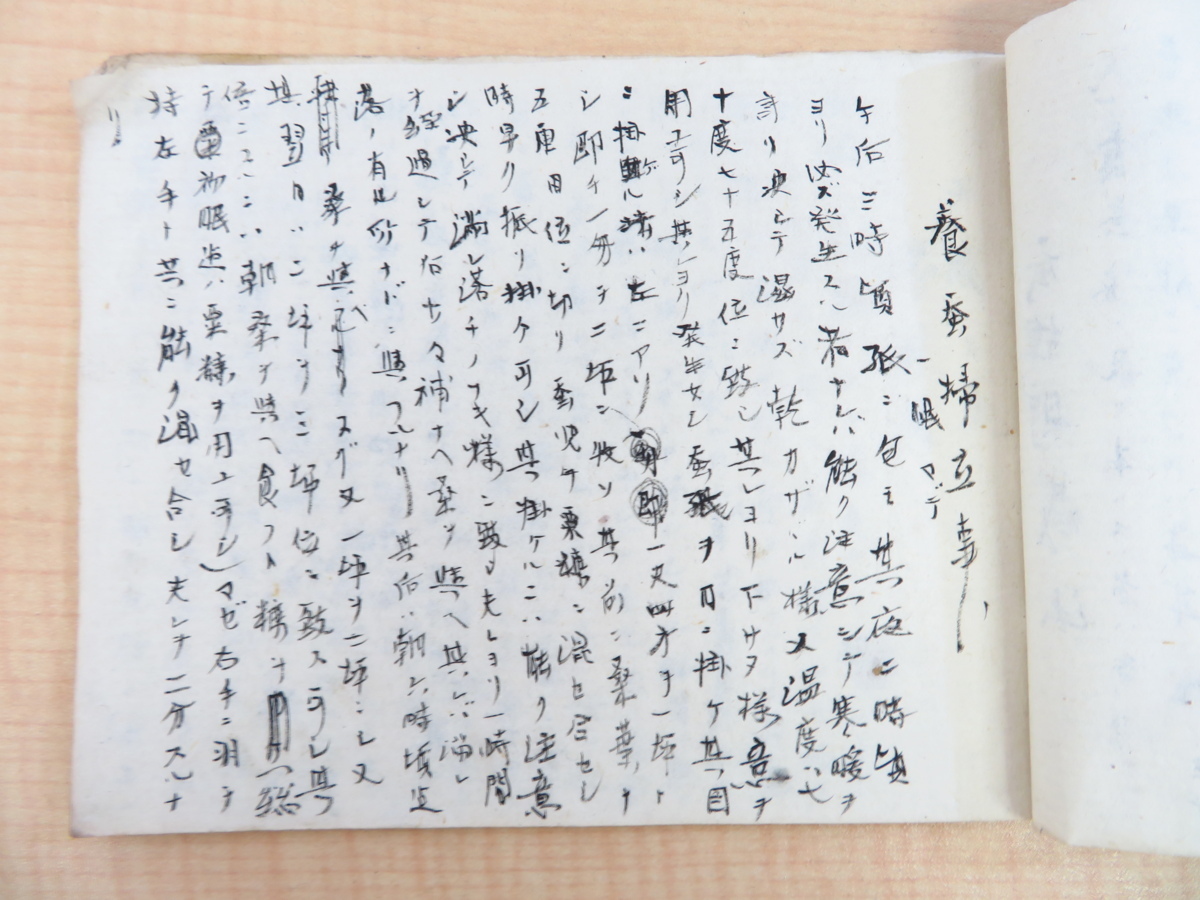 養蚕掃立事
一眠マデ
午后三時頃紙ニ包ミ其夜ニ時頃
ヨリ必ズ発生スル者ナレバ能ク注意シテ寒暖ヲ
計リ決シテ湿サズ乾カザル様又温度ハ七
十度七十五度位ニ致シ其レヨリ下サヌ様意ヲ
用ユ可シ其レヨリ発生セシ蚕紙ヲ目ニ掛ケ其目
ニ掛ケル諸ハ左ニアリ 一文四分ヲ一坪ト
シ即チ一分ヲ二坪ニ収ソ其内ニ桑葉ヲ
五厘目位ニ切リ蚕児ヲ粟糠ニ混セ合セシ
時早ク振リ掛ケ可シ其掛ケルニハ能ク注意
シ決シテ満レ落チノナキ様ニ致シ夫レヨリ一時間
ヲ経過シテ后サヌ補ナヘ桑ヲ與ヘ其レバ満レ
落ノ有ル所ナドニ與フルナリ其后ハ朝六時頃迄
桑ヲ與ヘ スグ又一坪ヲ二坪ニシ又
其翌日ハ二坪ヲ三坪位ニ致ス可シ其
倍ニスルニハ朝桑ヲ與ヘ食フト糠ヲ 総
テ 初眠迄ハ粟糠ヲ用ユ可シ)マゼ右手ニ羽ヲ
持左手ト共ニ能ク混セ合シ夫レヲ二分スルナ
リ